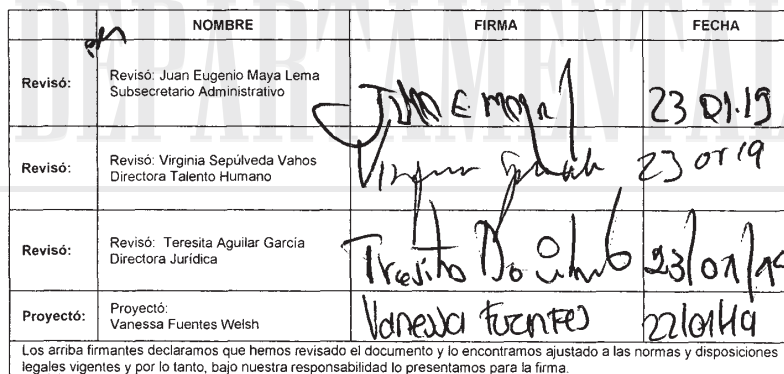 DEPARTAMENTAL
NOMBRE FIRMA FECHA
Revisó: Revisó: Juan Eugenio Maya Lema
Subsecretario Administrativo
Juan E Maya 23 01.19
Revisó: Revisó: Virginia Sepúlveda Vahos
Directora Talento Humano
23 01 19
Revisó: Revisó: Teresita Aguilar García
Directora Jurídica
23/01/19
Proyectó: Proyectó:
Vanessa Fuentes Welsh
Vanessa Fuentes 22/01/19
Los arriba firmantes declaramos que hemos revisado el documento y lo encontramos ajustado a las normas y disposiciones
legales vigentes y por lo tanto, bajo nuestra responsabilidad lo presentamos para la firma.